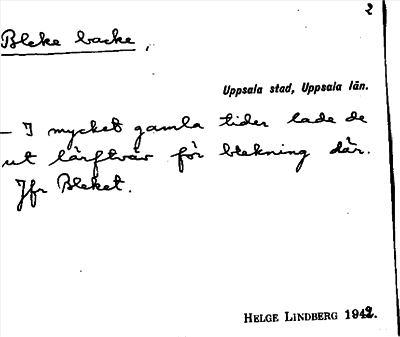 2
Bleke backe,
Uppsala stad, Uppsala län.
– I mycket gamla tider lade de
ut lärftväv för blekning där.
Jfr Bleket.
HELGE LINDBERG 1942.